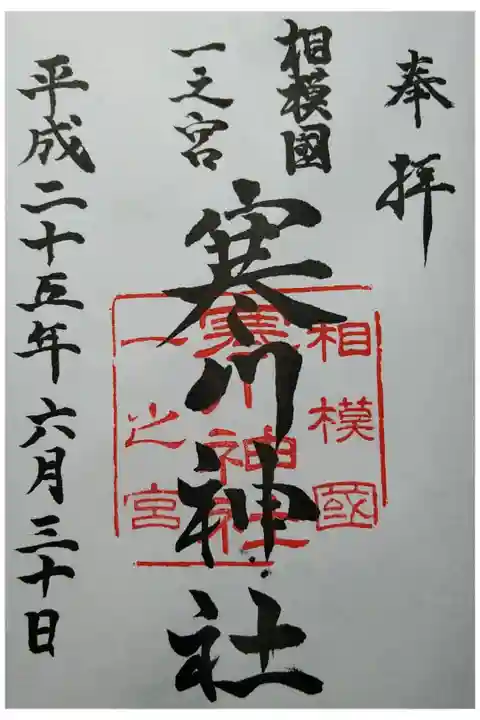 奉拝
相模國
一之宮
寒川神社
平成二十五年六月三十日
相模國
寒川神社
一之宮